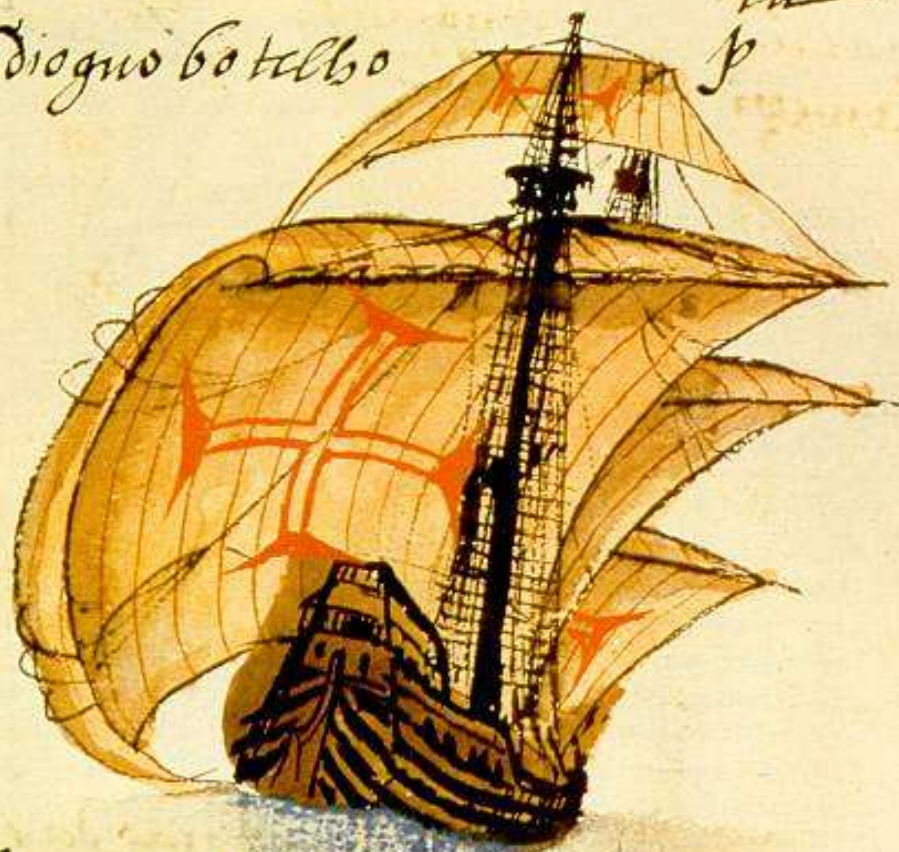 dioguo botelho
p